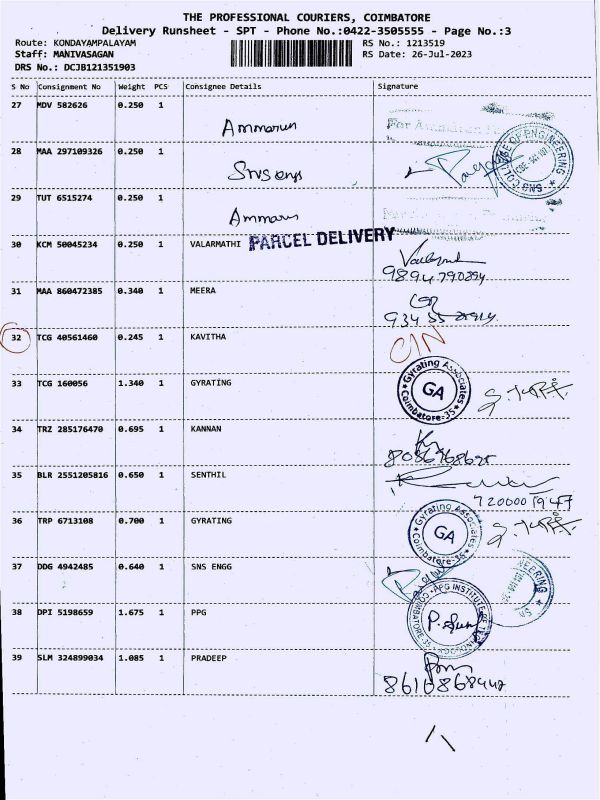 THE PROFESSIONAL COURIERS, COIMBATORE
Delivery Runsheet - SPT - Phone No.:0422-3505555 - Page No.:3
Route: KONDAYAMPALAYAM RS No.: 1213519
Staff: MANIVASAGAN RS Date: 26-Jul-2023
DRS No.: DCJB121351903
S No Consignment No Weight PCS Consignee Details Signature
27 MDV 582626 0.250 1
28 MAA 297109326 0.250 1
SNS COLLEGE OF ENGINEERING
29 TUT 6515274 0.250 1
30 KCM 50045234 0.250 1 VALARMATHI PARCEL DELIVERY
9894790294
31 MAA 860472385 0.340 1 MEERA
32 TCG 40561460 0.245 1 KAVITHA
33 TCG 160056 1.340 1 GYRATING Gyrating Associates GA Coimbatore-35
34 TRZ 285176470 0.695 1 KANNAN
35 BLR 2551205816 0.650 1 SENTHIL
7200001947
36 TRP 6713108 0.700 1 GYRATING Gyrating Associates GA Coimbatore-35
37 DDG 4942485 0.640 1 SNS ENGG
38 DPI 5198659 1.675 1 PPG
39 SLM 324899034 1.085 1 PRADEEP